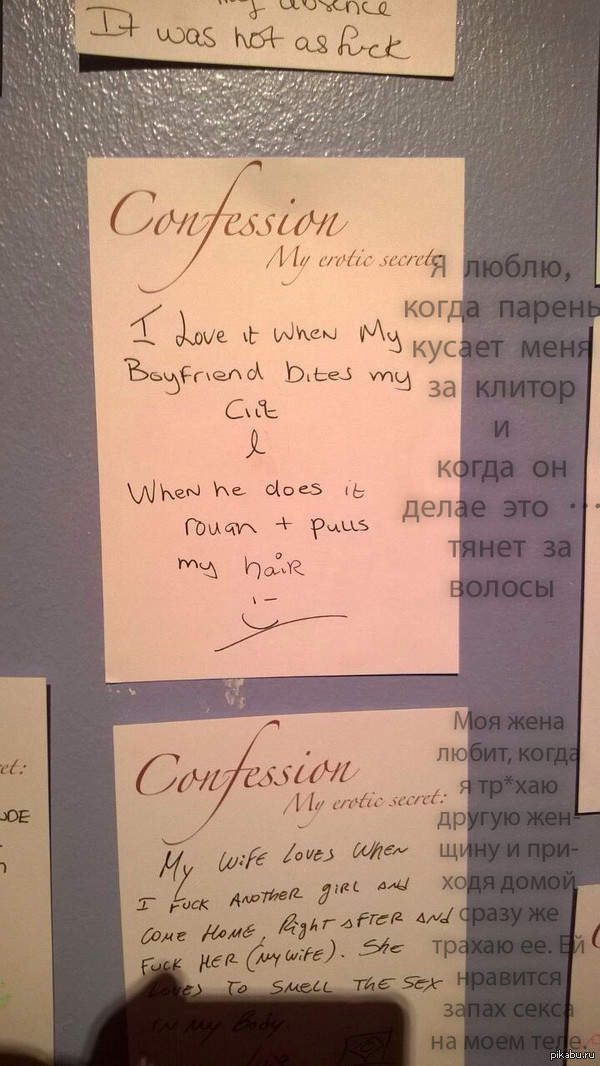 my absence
It was hot as fuck
Confession
My erotic secret:
I Love it when My
Boyfriend bites my
Clit
&
When he does it
rough + pulls
my hair
Я люблю,
когда парень
кусает меня
за клитор
и
когда он
делае это ...
тянет за
волосы
Confession
My erotic secret:
My wife Loves when
I fuck another girl and
come home, right after and
fuck her (my wife). She
loves to smell the sex
in my body.
Моя жена
любит, когда
я тр*хаю
другую жен-
щину и при-
ходя домой,
сразу же
трахаю ее. Ей
нравится
запах секса
на моем теле.
et:
pikabu.ru